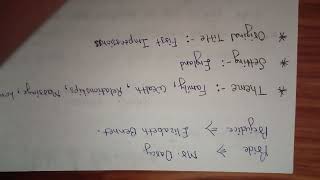 Pride => Mr. Darcy
Prejudice => Elizabeth Bennet.
* Theme :- Family, Wealth, Relationships, Marriage,
* Setting :- England
* Original Title :- First Impressions